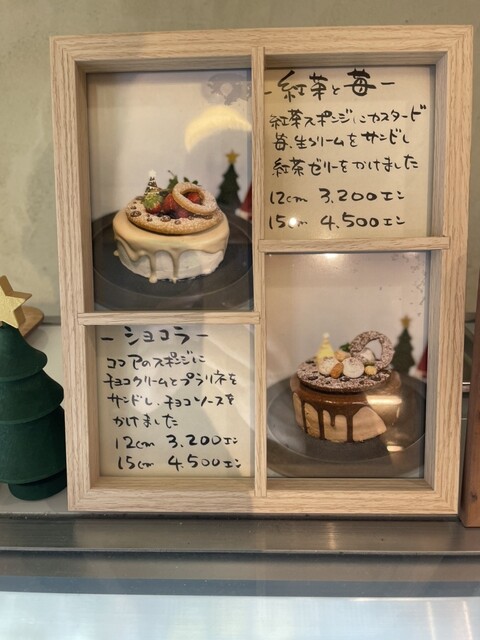 - 紅茶と苺 -
紅茶スポンジにカスタード
苺、生クリームをサンドし
紅茶ゼリーをかけました
12cm 3,200エン
15cm 4,500エン
- ショコラ -
ココアのスポンジに
チョコクリームとプラリネを
サンドし、チョコソースを
かけました
12cm 3,200エン
15cm 4,500エン